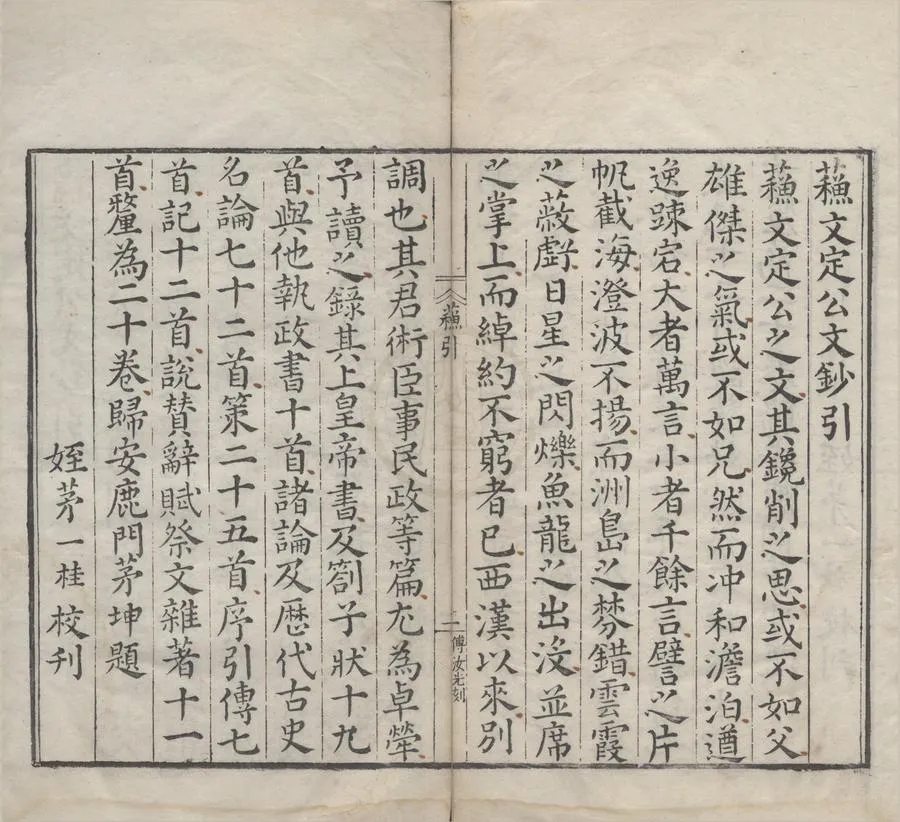 蘓文定公文鈔引
蘓文定公之文其鑱削之思或不如父
雄傑之氣或不如兄然而冲和澹泊遒
逸踈宕大者萬言小者千餘言譬之片
帆截海澄波不揚而洲島之棼錯雲霞
之蔽虧日星之閃爍魚龍之出没並席
之掌上而綽約不窮者已西漢以來别
蘓引
二
傅汝光刻
調也其君術臣事民政等篇尤為卓犖
予讀之錄其上皇帝書及劄子狀十九
首與他執政書十首諸論及歴代古史
名論七十二首策二十五首序引傳七
首記十二首說賛辭賦祭文雜著十一
首釐為二十卷歸安鹿門茅坤題
姪茅一桂校刋